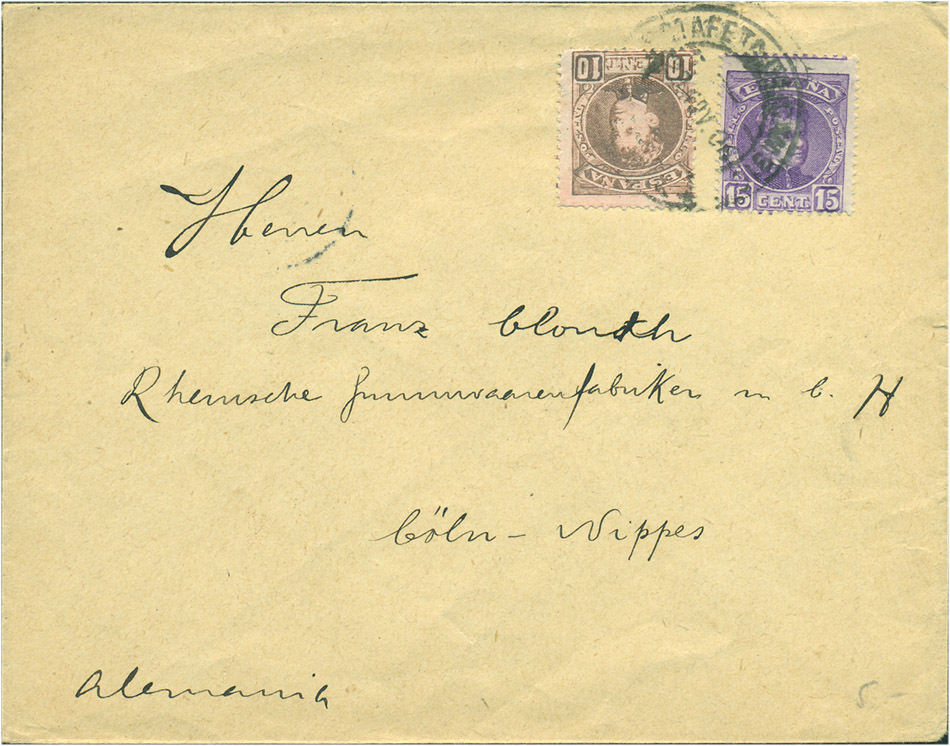 ESTAFETA
10 10
ESPAÑA
ESPAÑA
15 CENT 15
Herren
Franz Clouth
Rheinische Gummiwaarenfabriken m b. H
Cöln - Nippes
Alemania
5.-